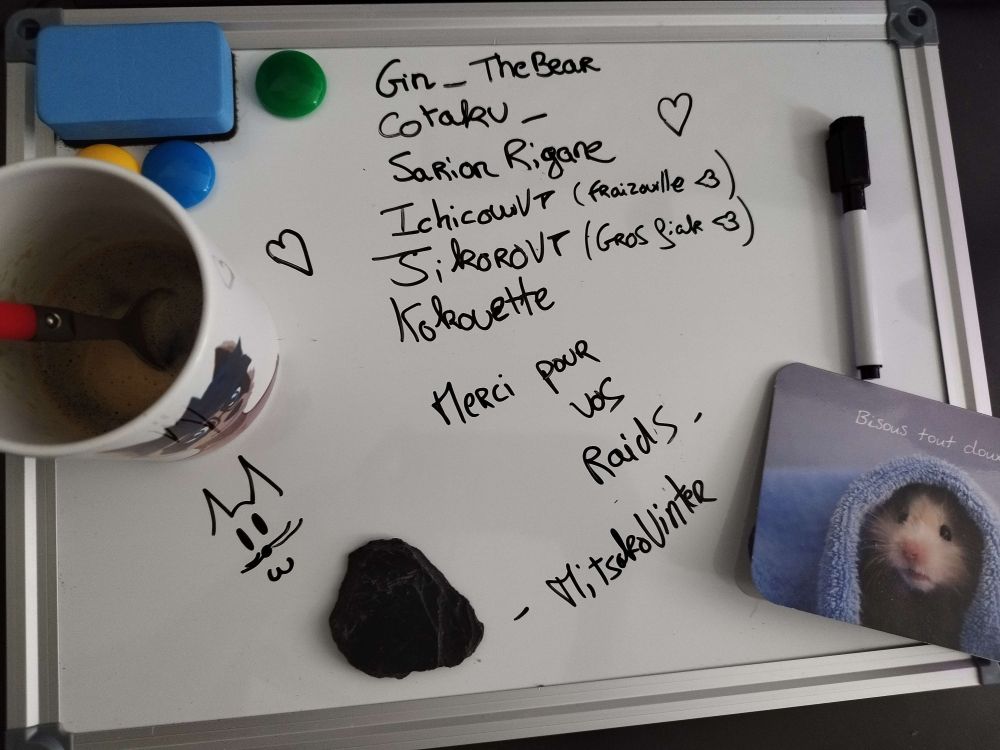 Gin_TheBear
Cotaku_
Sarion Rigane
IchicowVT (fraizouille <3)
SikoroVT (GROS fiak <3)
Kokouette
Merci pour
vos
Raids -
- MitsukoVinter
Bisous tout doux